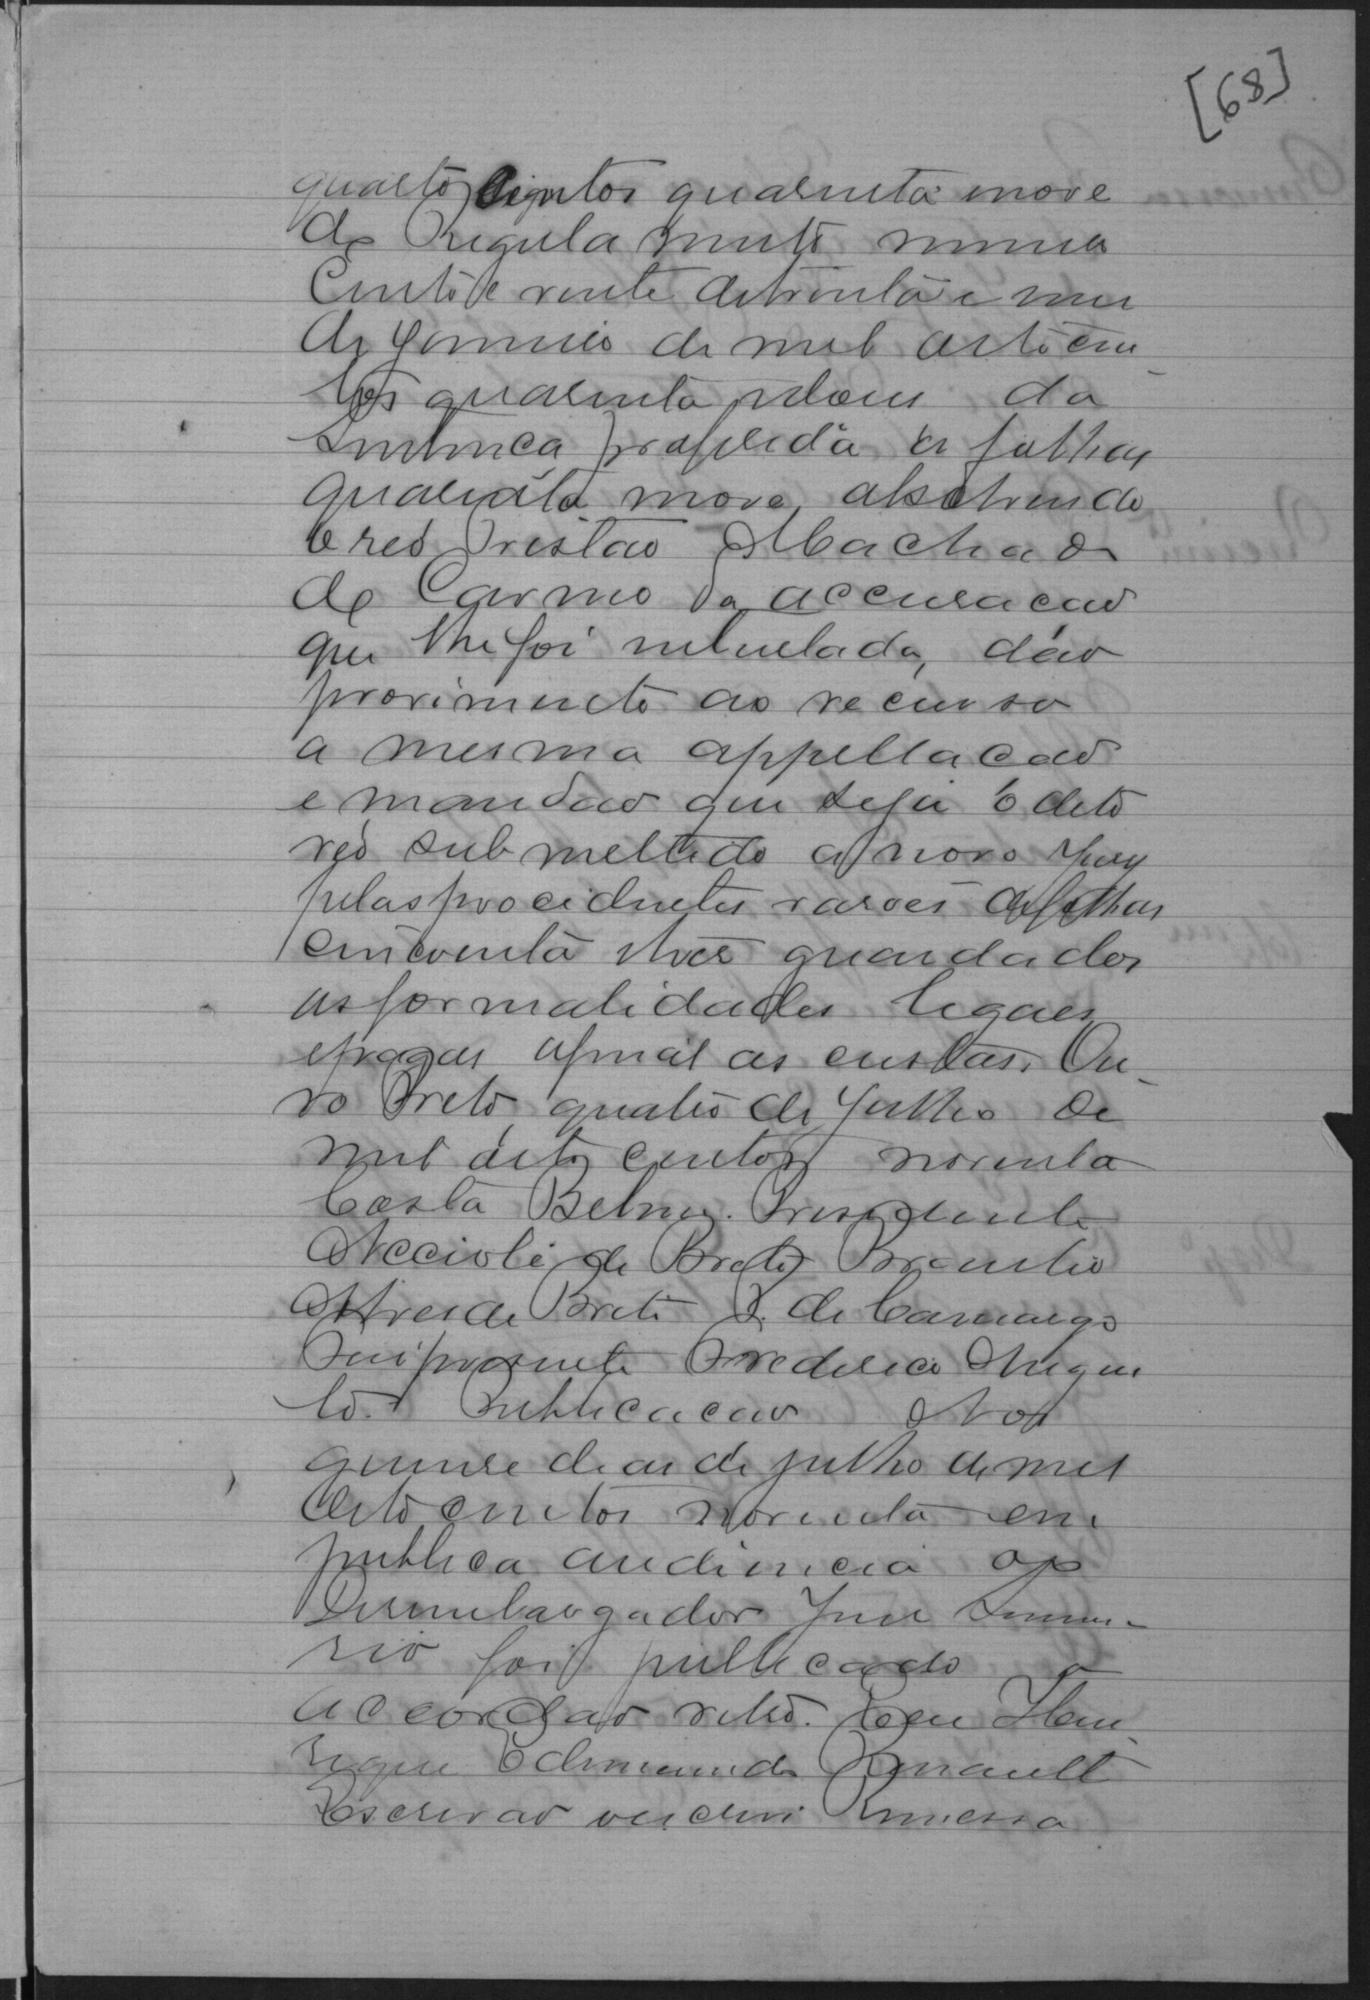 [68]
quatrocentos quarenta nove
do Regulamento numero
Cento e vinte de trinta e um
de Janeiro de mil oitocen
tos quarenta e dous da
Sentença proferida a folhas
quarenta nove, absolvendo
o reo Tristão Machado
do Carmo da accusacão
que lhe foi intentada, dão
provimento ao recurso
a mesma appellacão
e mandão que seja o dito
reo submettido a novo Jury
pelas procedentes rasões de folhas
cincoenta e tres guardados
as formalidades legaes
e pagas afinal as custas. Ou-
ro Preto, quatro de Julho de
mil oito centos noventa
Costa Belem. Presidente
Accioli de Brito Braulio
Alves de Brito L. de Camargo
Fui presente Frederico Augus
to. Publicacão Aos
quinze dias de julho de mil
oito centos noventa em
publica audiencia do
Desembargador Juiz Sema-
rio foi publicado o
accordão retro. Eu Hen
rique Edmundo Renault
Escrivão o escrevi Remessa